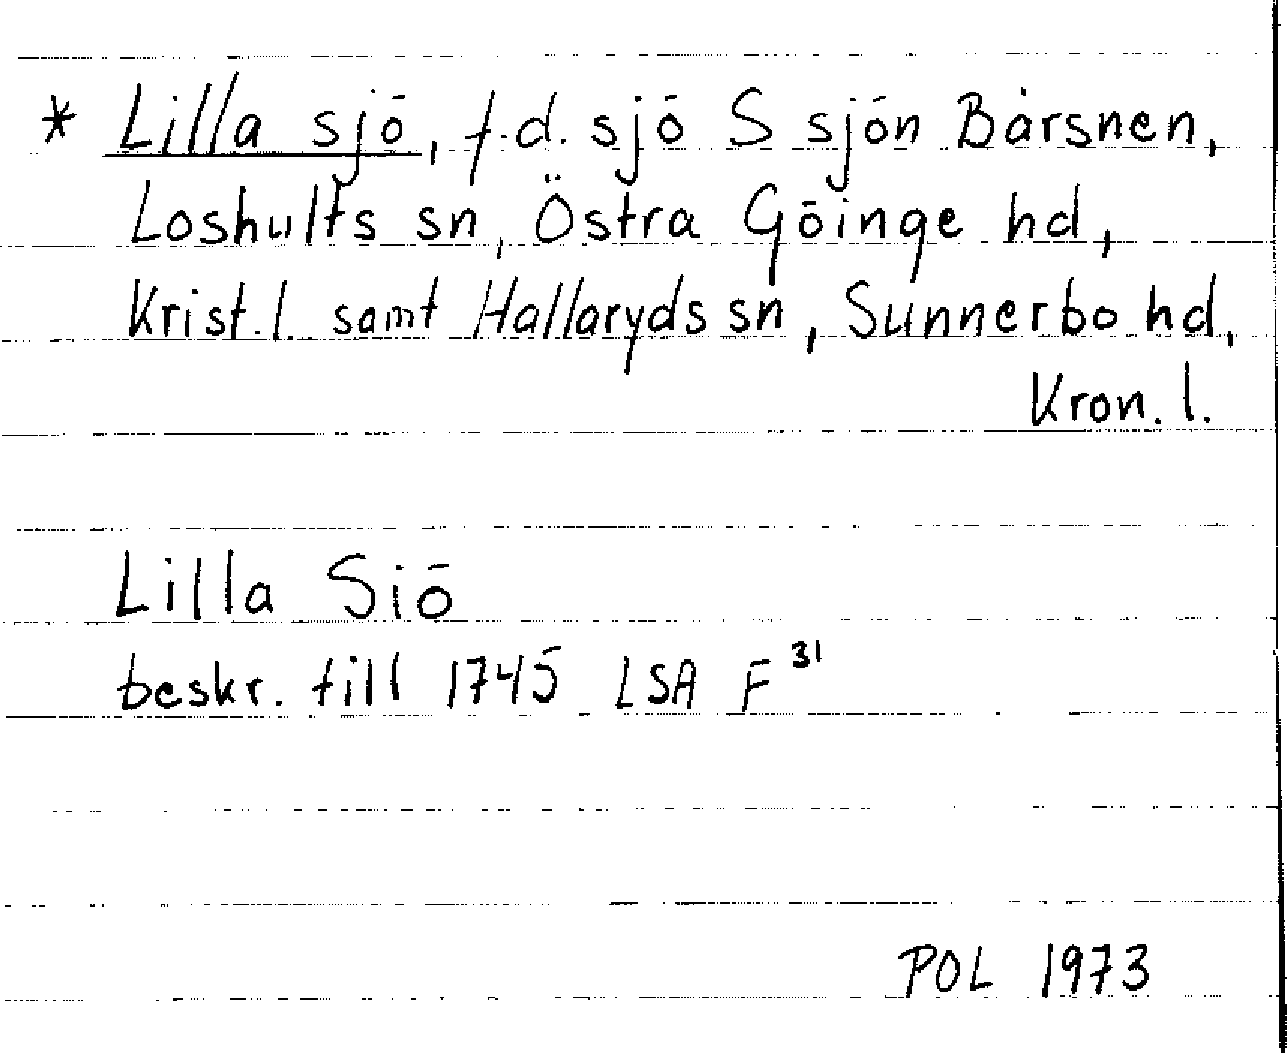 * Lilla sjö, f.d. sjö S sjön Bårsnen,
Loshults sn, Östra Göinge hd,
Krist. l. samt Hallaryds sn, Sunnerbo hd,
Kron. l.
Lilla Siö
beskr. till 1745 LSA F³¹
POL 1973